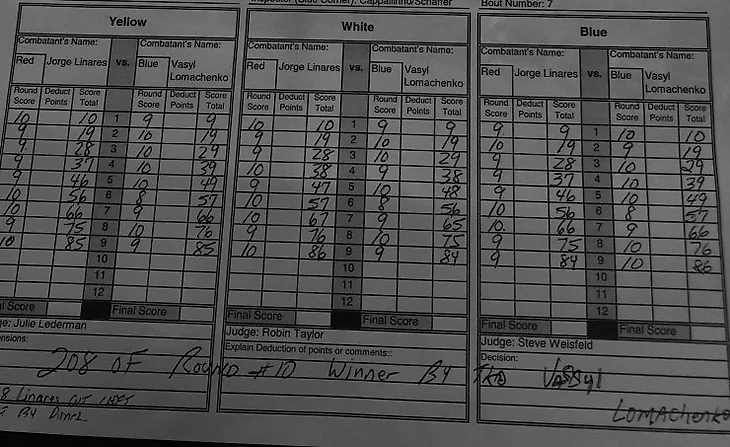 Inspector (Blue Corner): Cappallinno/Schaffer
Bout Number: 7
Yellow
Combatant's Name: Combatant's Name:
Red Jorge Linares vs. Blue Vasyl Lomachenko
Round Score Deduct Points Score Total Round Score Deduct Points Score Total
10 10 1 9 9
9 19 2 10 19
9 28 3 10 29
9 37 4 10 39
9 46 5 10 49
10 56 6 8 57
10 66 7 9 66
9 75 8 10 76
10 85 9 9 85
10
11
12
Score Final Score
Julie Lederman
White
Combatant's Name: Combatant's Name:
Red Jorge Linares vs. Blue Vasyl Lomachenko
Round Score Deduct Points Score Total Round Score Deduct Points Score Total
10 10 1 9 9
9 19 2 10 19
9 28 3 10 29
10 38 4 9 38
9 47 5 10 48
10 57 6 8 56
10 67 7 9 65
9 76 8 10 75
10 86 9 9 84
10
11
12
Final Score Final Score
Judge: Robin Taylor
Explain Deduction of points or comments::
Blue
Combatant's Name: Combatant's Name:
Red Jorge Linares vs. Blue Vasyl Lomachenko
Round Score Deduct Points Score Total Round Score Deduct Points Score Total
9 9 1 10 10
10 19 2 9 19
9 28 3 10 29
9 37 4 10 39
9 46 5 10 49
10 56 6 8 57
10 66 7 9 66
9 75 8 10 76
9 84 9 10 86
10
11
12
Final Score Final Score
Judge: Steve Weisfeld
Decision:
208 OF Round #10 Winner By TKO Vassyl
Lomachenko
8 Linares CUT LEFT